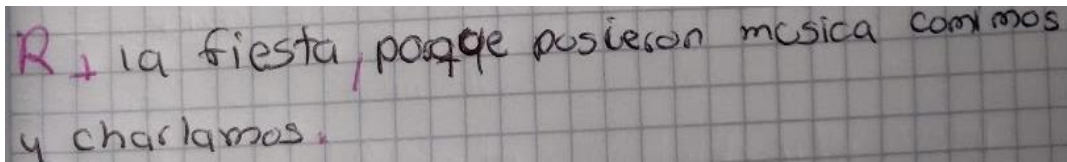 R+ la fiesta, porque pusieron musica comimos
y charlamos.